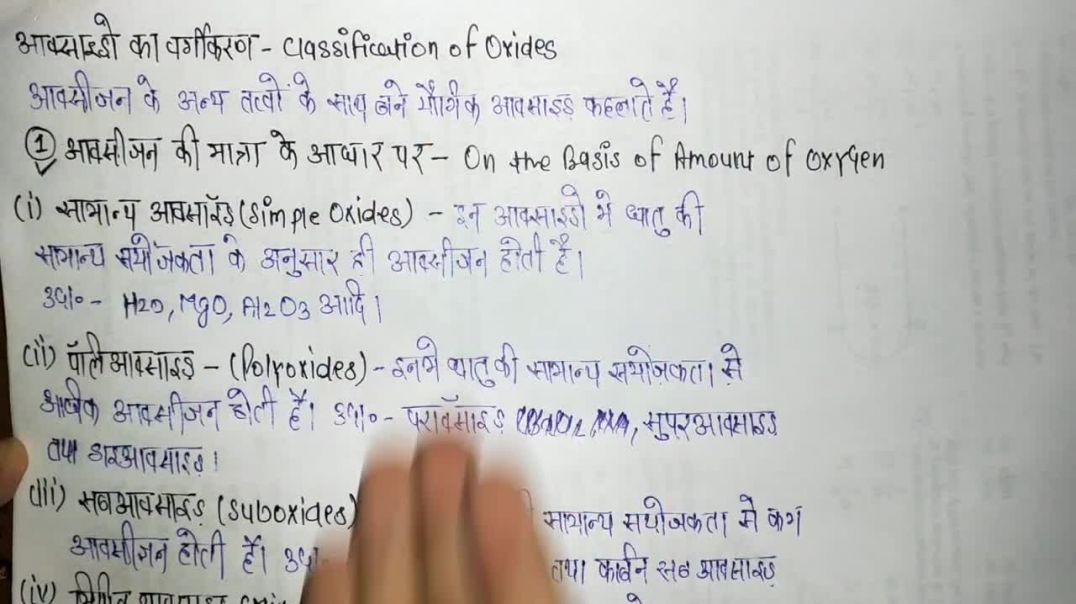 आक्साइडो का वर्गीकरण - Classification of Oxides
आक्सीजन के अन्य तत्वों के साथ बने यौगिक आक्साइड कहलाते है।
① आक्सीजन की मात्रा के आधार पर - On the Basis of Amount of Oxygen
(i) सामान्य आक्साइड (Simple Oxides) - इन आक्साइडो मे धातु की
सामान्य संयोजकता के अनुसार ही आक्सीजन होती है।
उदा० - H2O, MgO, Al2O3 आदि।
(ii) पॉलिआक्साइड - (Polyoxides) - इनमे धातु की सामान्य संयोजकता से
अधिक आक्सीजन होती है। उदा० - पराक्साइड, सुपरआक्साइड
तथा डाइआक्साइड।
(iii) सबआक्साइड (Suboxides) सामान्य संयोजकता से कम
आक्सीजन होती है। उदा० तथा कार्बन सब आक्साइड
(iv)